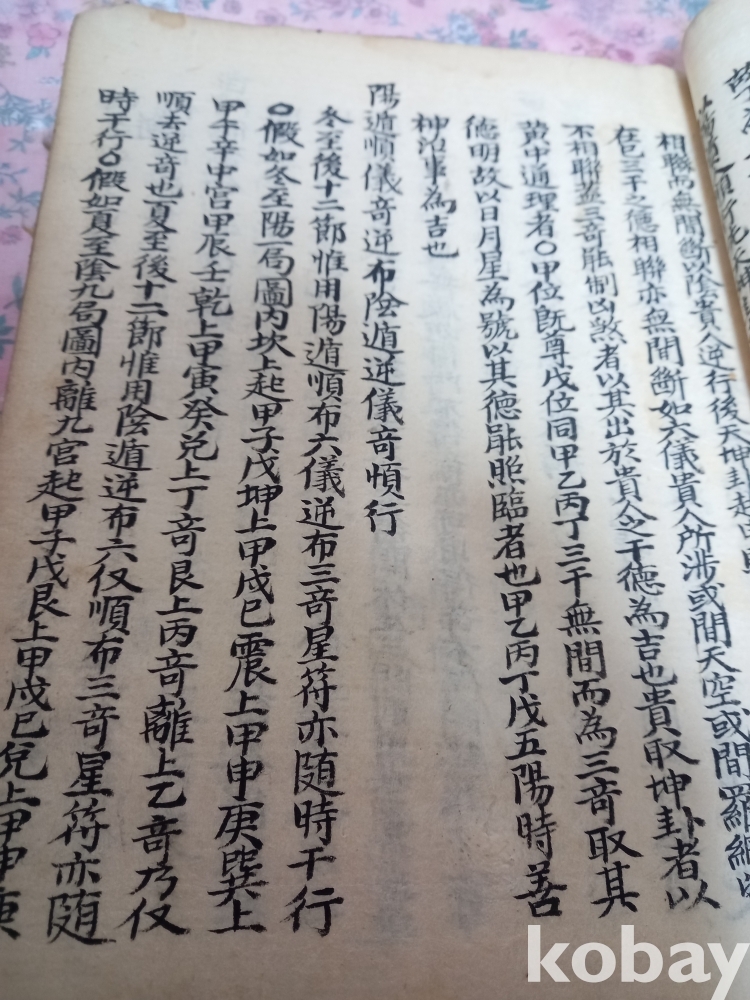 相聯而無間斷以陰貴人逆行後天坤卦起
在巳三干之德相聯亦無間斷如六儀貴人所涉或間天空或間羅網
不相聯蓋三奇能制凶煞者以其出於貴人之干德為吉也貴取坤卦者以
黃中通理者〇甲位既尊戊位同甲乙丙丁三干無間而為三奇取其
德明故以日月星為號以其德能照臨者也甲乙丙丁戊五陽時善
神治事為吉也
陽遁順儀奇逆布陰遁逆儀奇順行
冬至後十二節惟用陽遁順布六儀逆布三奇星符亦随時干行
〇假如冬至陽一局圖內坎上起甲子戊坤上甲戌巳震上甲申庚巽上
甲午辛中宮甲辰壬乾上甲寅癸兌上丁奇艮上丙奇離上乙奇乃仅
順去逆奇也夏至後十二節惟用陰遁逆布六仅順布三奇星符亦随
時干行〇假如夏至陰九局圖內離九宮起甲子戊艮上甲戌巳兌上甲申庚
kobay